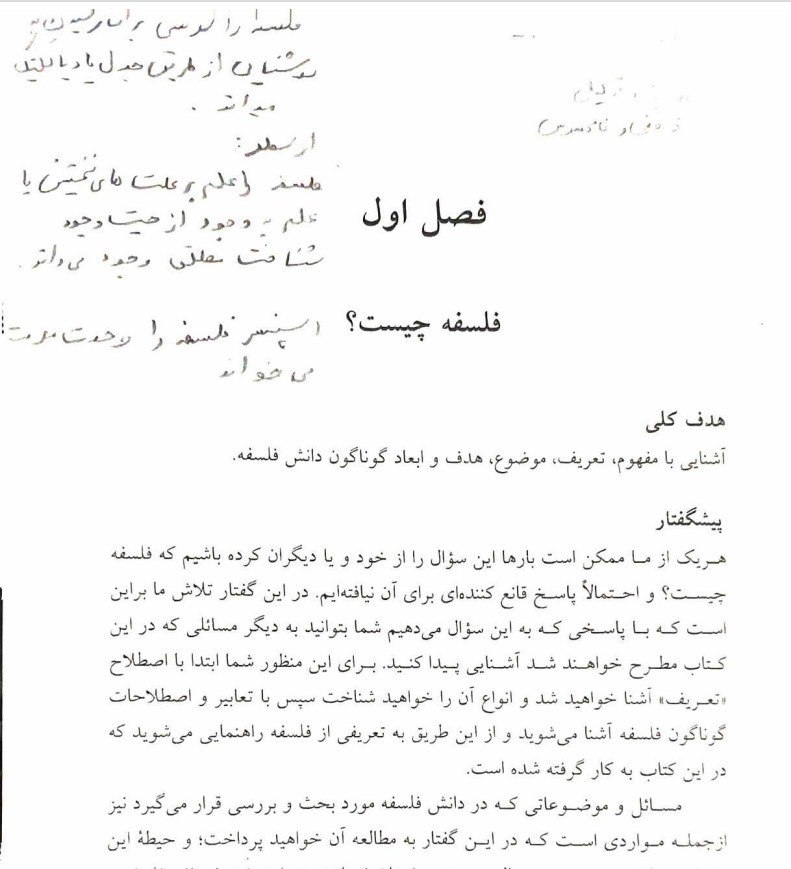 فلسفه را کوششی برای رسیدن به
روشنایی از طریق جدل یا دیالکتیک
میداند .
ارسطو :
فلسفه را علم به علت های نخستین یا
علم به وجود از حیث وجود
شناخت مطلق وجود می داند .
اسپنسر فلسفه را وحدت معرفت
می خواند
فصل اول
فلسفه چیست؟
هدف کلی
آشنایی با مفهوم، تعریف، موضوع، هدف و ابعاد گوناگون دانش فلسفه.
پیشگفتار
هـریک از مـا ممکن است بارها این سؤال را از خود و یا دیگران کرده باشیم که فلسفه
چیسـت؟ و احـتمالاً پاسـخ قانع کننده‌ای برای آن نیافته‌ایم. در این گفتار تلاش ما براین
اسـت کـه بـا پاسـخی کـه به این سؤال می‌دهیم شما بتوانید به دیگر مسائلی که در این
کـتاب مطـرح خواهـند شـد آشـنایی پـیدا کـنید. بـرای این منظور شما ابتدا با اصطلاح
«تعـریف» آشنا خواهید شد و انواع آن را خواهید شناخت سپس با تعابیر و اصطلاحات
گوناگون فلسفه آشنا می‌شوید و از این طریق به تعریفی از فلسفه راهنمایی می‌شوید که
در این کتاب به کار گرفته شده است.
مسـائل و موضـوعاتی کـه در دانش فلسفه مورد بحث و بررسی قرار می‌گیرد نیز
ازجملـه مـواردی است کـه در ایـن گفتار به مطالعه آن خواهید پرداخت؛ و حیطهٔ این